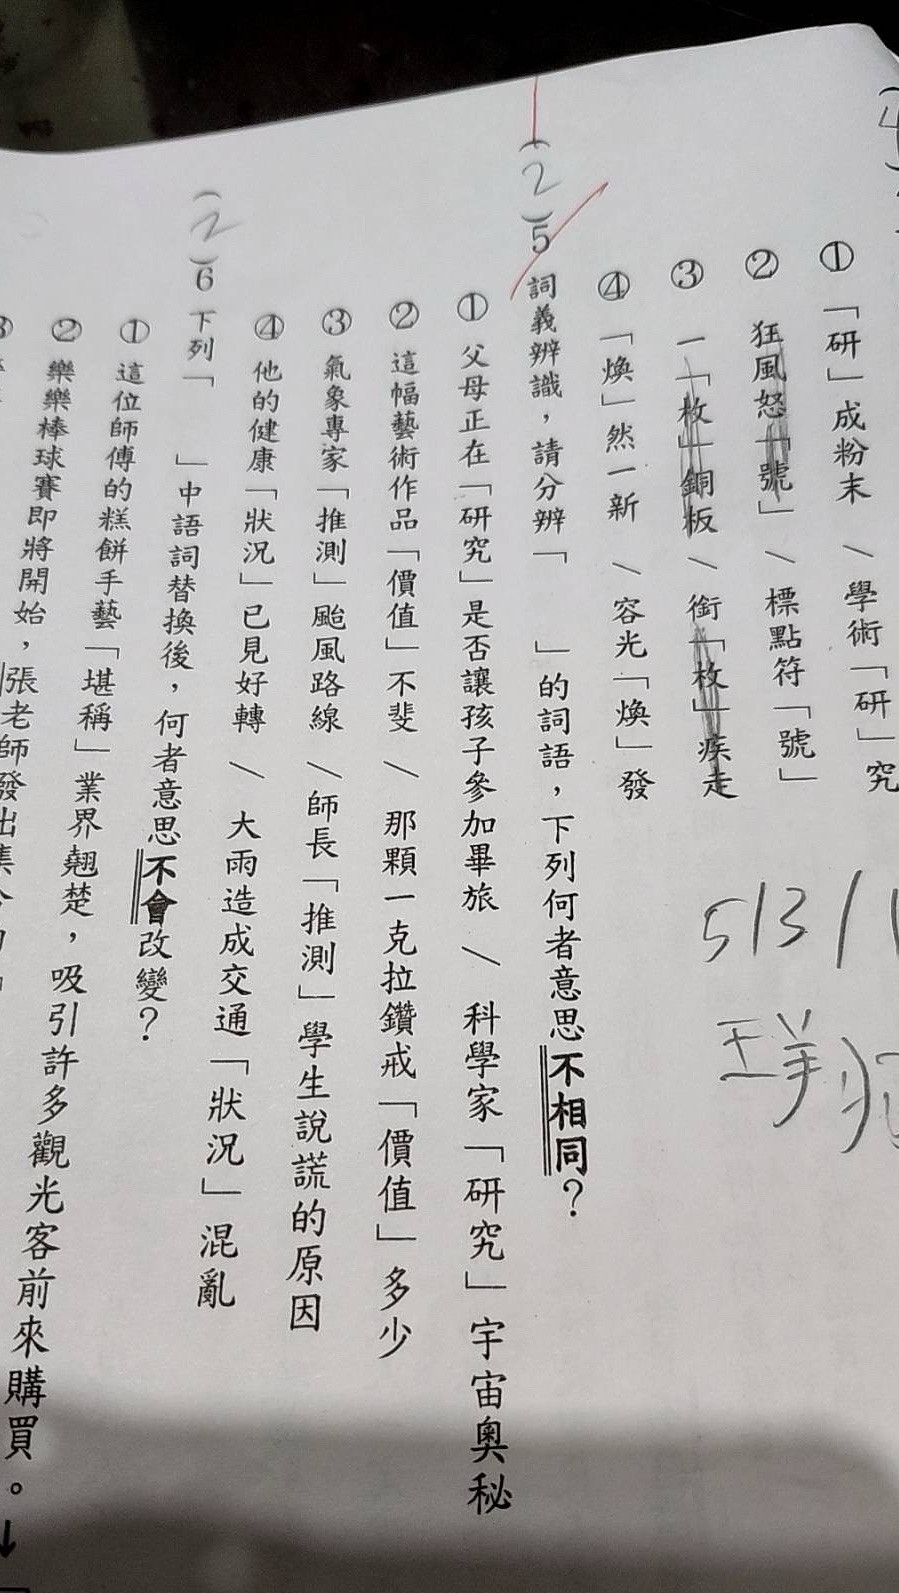 (4)
①「研」成粉末 ／ 學術「研」究
②狂風怒「號」 ／ 標點符「號」
③一「枚」銅板 ／ 銜「枚」疾走
④「煥」然一新 ／ 容光「煥」發
513 / 1
(2) 5 詞義辨識，請分辨「　」的詞語，下列何者意思不相同？
①父母正在「研究」是否讓孩子參加畢旅 ／ 科學家「研究」宇宙奧秘
②這幅藝術作品「價值」不斐 ／ 那顆一克拉鑽戒「價值」多少
③氣象專家「推測」颱風路線 ／師長「推測」學生說謊的原因
④他的健康「狀況」已見好轉 ／ 大雨造成交通「狀況」混亂
(2) 6 下列「　」中語詞替換後，何者意思不會改變？
①這位師傅的糕餅手藝「堪稱」業界翹楚，吸引許多觀光客前來購買。↓「
②樂樂棒球賽即將開始，張老師發出集合的「